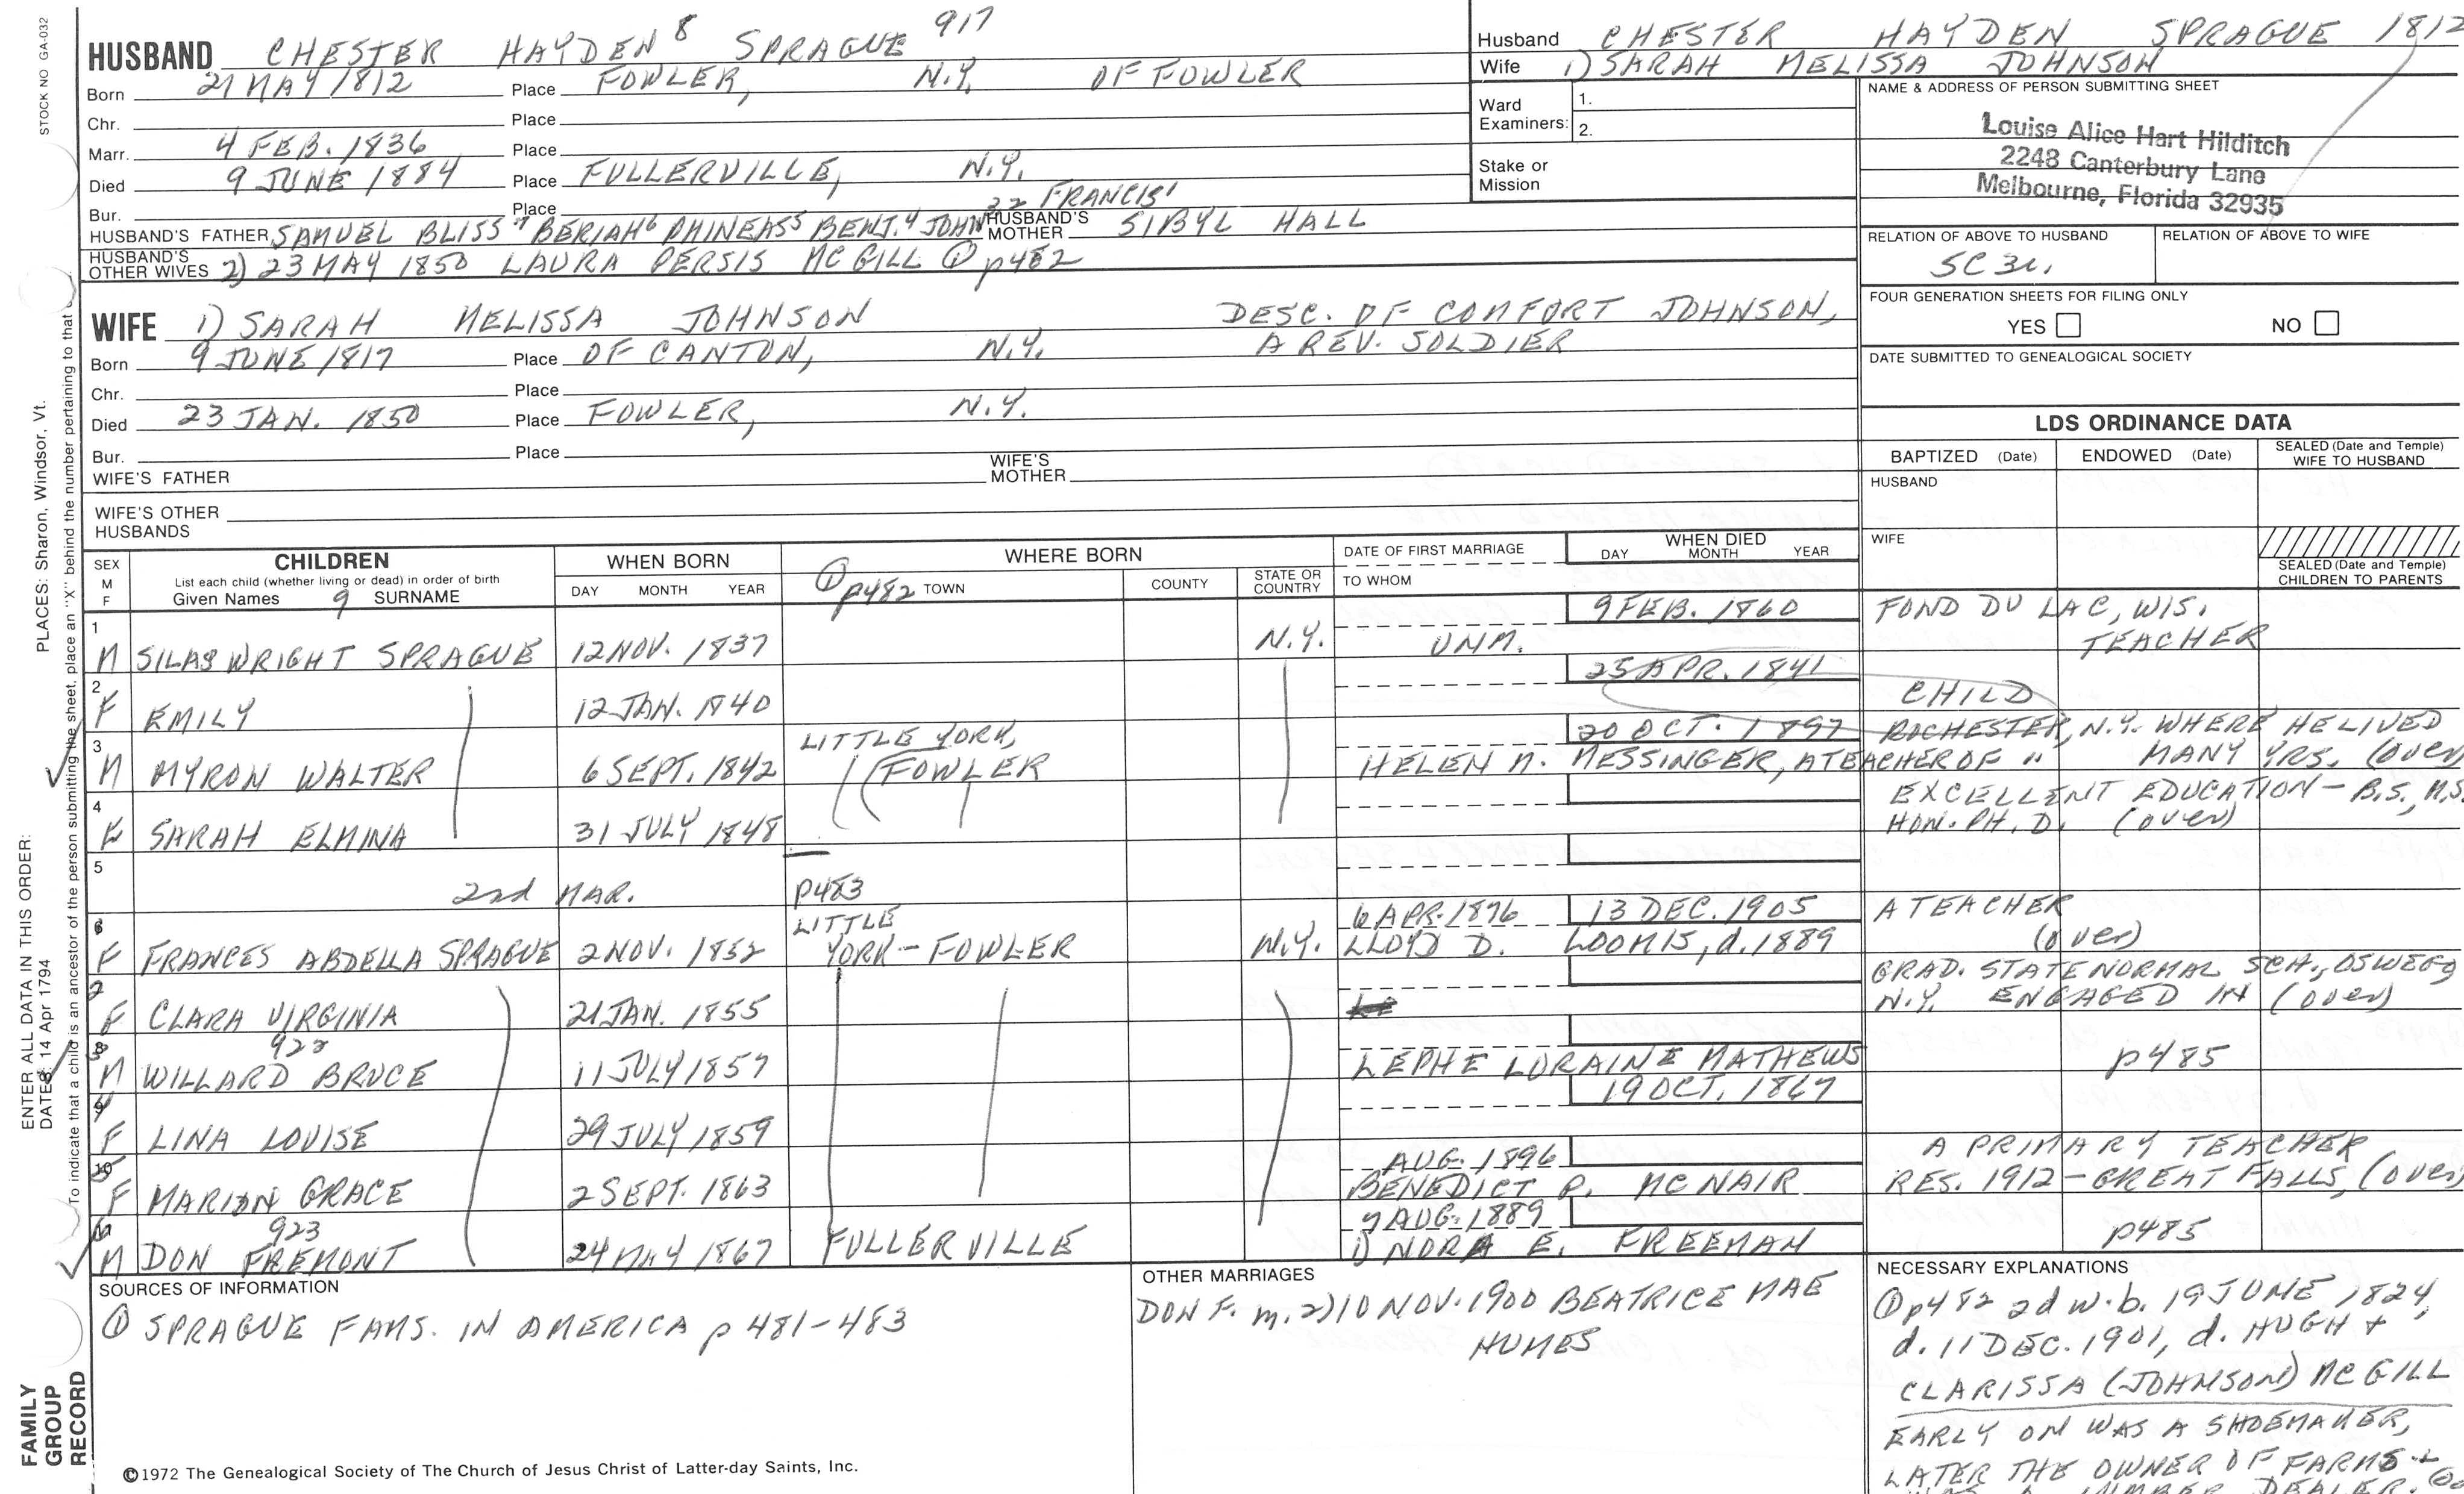 STOCK NO GA-032
PLACES: Sharon, Windsor, Vt.
ENTER ALL DATA IN THIS ORDER:
DATES: 14 Apr 1794
To indicate that a child is an ancestor of the person submitting the sheet, place an "X" behind the number pertaining to that
FAMILY
GROUP
RECORD
HUSBAND CHESTER HAYDEN 8 SPRAGUE 917
Born 21 MAY 1812 Place FOWLER, N.Y. OF FOWLER
Chr. Place
Marr. 4 FEB. 1836 Place
Died 9 JUNE 1884 Place FULLERVILLE, N.Y.
Bur. Place
22 FRANCIS1
HUSBAND'S FATHER SAMUEL BLISS7 BERIAH6 PHINEAS5 BENJ.4 JOHN HUSBAND'S MOTHER SIBYL HALL
HUSBAND'S OTHER WIVES 2) 23 MAY 1850 LAURA PERSIS MCGILL ① p482
WIFE 1) SARAH MELISSA JOHNSON DESC. OF COMFORT JOHNSON,
A REV. SOLDIER
Born 9 JUNE 1817 Place OF CANTON, N.Y.
Chr. Place
Died 23 JAN. 1850 Place FOWLER, N.Y.
Bur. Place
WIFE'S FATHER WIFE'S MOTHER
WIFE'S OTHER
HUSBANDS
Husband CHESTER HAYDEN SPRAGUE 1812
Wife 1) SARAH MELISSA JOHNSON
Ward
Examiners: 1.
2.
Stake or
Mission
NAME & ADDRESS OF PERSON SUBMITTING SHEET
Louise Alice Hart Hilditch
2248 Canterbury Lane
Melbourne, Florida 32935
RELATION OF ABOVE TO HUSBAND RELATION OF ABOVE TO WIFE
5C 3r.
FOUR GENERATION SHEETS FOR FILING ONLY
YES NO
DATE SUBMITTED TO GENEALOGICAL SOCIETY
LDS ORDINANCE DATA
BAPTIZED (Date) ENDOWED (Date) SEALED (Date and Temple) WIFE TO HUSBAND
HUSBAND
WIFE
SEALED (Date and Temple) CHILDREN TO PARENTS
SEX M F CHILDREN WHEN BORN WHERE BORN DATE OF FIRST MARRIAGE WHEN DIED
List each child (whether living or dead) in order of birth
Given Names 9 SURNAME DAY MONTH YEAR ① p482 TOWN COUNTY STATE OR COUNTRY TO WHOM DAY MONTH YEAR
1 M SILAS WRIGHT SPRAGUE 12 NOV. 1837 N.Y. UNM. 9 FEB. 1860 FOND DU LAC, WIS.
TEACHER
2 F EMILY 12 JAN. 1840 25 APR. 1841 CHILD
3 M MYRON WALTER 6 SEPT. 1842 LITTLE YORK, FOWLER 20 OCT. 1897 ROCHESTER, N.Y. WHERE HE LIVED
HELEN M. MESSINGER, A TEACHER OF " MANY YRS. (over)
4 F SARAH ELMINA 31 JULY 1848 EXCELLENT EDUCATION - B.S., M.S.
HON. PH. D. (over)
5 2nd MAR. p483
6 F FRANCES ABDELLA SPRAGUE 2 NOV. 1852 LITTLE YORK - FOWLER N.Y. 6 APR. 1876 13 DEC. 1905 A TEACHER
LLOYD D. LOOMIS, d. 1889 (over)
7 F CLARA VIRGINIA 21 JAN. 1855 GRAD. STATE NORMAL SCH., OSWEGO
N.Y. ENGAGED IN (over)
922
8 M WILLARD BRUCE 11 JULY 1857 LEPHE LORAINE MATHEWS p485
9 F LINA LOUISE 29 JULY 1859 19 OCT. 1867
10 F MARION GRACE 2 SEPT. 1863 AUG. 1896 A PRIMARY TEACHER
BENEDICT P. MCNAIR RES. 1912 - GREAT FALLS, (over)
923
M DON FREMONT 24 MAY 1867 FULLERVILLE 7 AUG. 1889 p485
1) NORA E. FREEMAN
SOURCES OF INFORMATION
① SPRAGUE FAMS. IN AMERICA p 481-483
OTHER MARRIAGES
DON F. m. 2) 10 NOV. 1900 BEATRICE MAE
HUMES
NECESSARY EXPLANATIONS
① p482 2d w. b. 19 JUNE 1824,
d. 11 DEC. 1901, d. HUGH +
CLARISSA (JOHNSON) MCGILL
EARLY ON WAS A SHOEMAKER,
LATER THE OWNER OF FARMS +
WAS A LUMBER DEALER.
©1972 The Genealogical Society of The Church of Jesus Christ of Latter-day Saints, Inc.